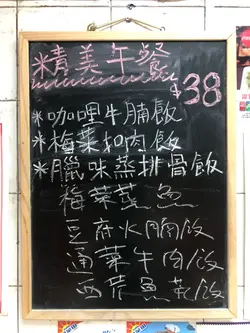 精美午餐
$38
*咖哩牛腩飯
*梅菜扣肉飯
*臘味蒸排骨飯
梅菜蒸魚
豆府火腩飯
通菜牛肉飯
西芹魚飯